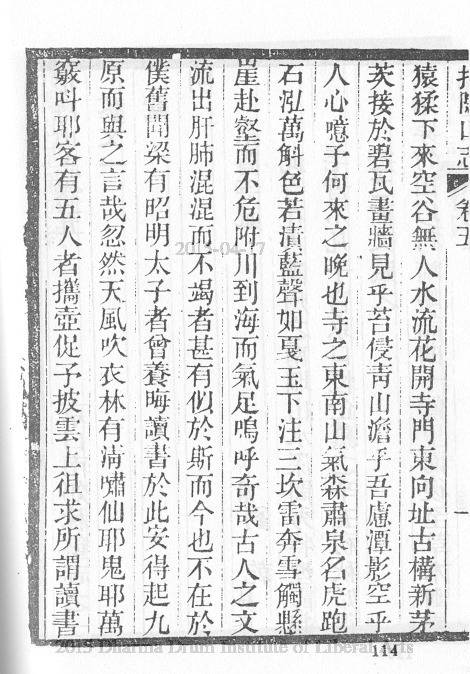 招隱山志 卷五 一
猿猱下來空谷無人水流花開寺門東向址古構新茅
茨接於碧瓦畫牆見乎苔侵靑山澹乎吾慮潭影空乎
人心噫子何來之晚也寺之東南山氣森肅泉名虎跑
石泓萬斛色若漬藍聲如戛玉下注三坎雷奔雪觸懸
崖赴壑而不危附川到海而氣足嗚呼奇哉古人之文
流出肝肺混混而不竭者甚有似於斯而今也不在於
僕舊聞梁有昭明太子者曾養晦讀書於此安得起九
原而與之言哉忽然天風吹衣林有淸嘯仙耶鬼耶萬
竅叫耶客有五人者攜壺促予披雲上徂求所謂讀書
2013-04-17
2013 Dharma Drum Institute of Liberal Arts
114